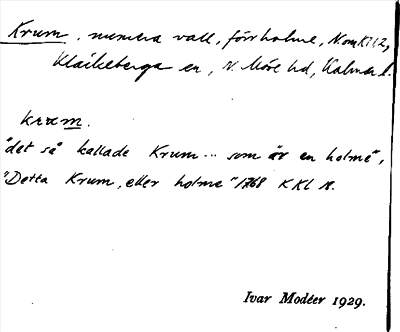 Krum, numera vall, förr holme, N.om Kl 12,
Kläckeberga sn, N. Möre hd, Kalmar l.
krum.
"det så kallade Krum... som är en holme",
"Detta Krum, eller holme" 1768 KKL A.
Ivar Modéer 1929.